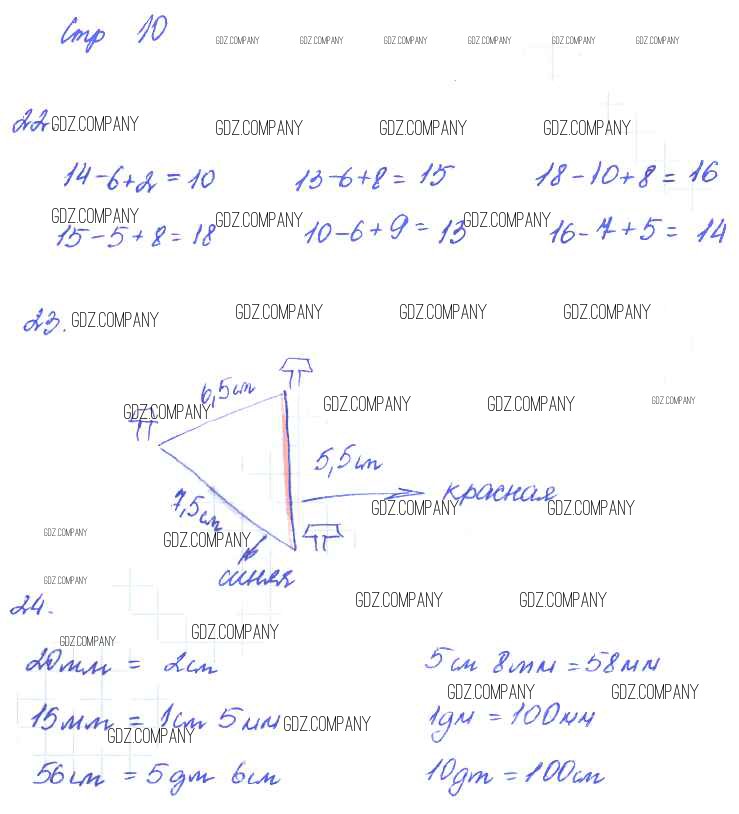 Стр 10
GDZ.COMPANY GDZ.COMPANY GDZ.COMPANY GDZ.COMPANY GDZ.COMPANY GDZ.COMPANY
22 GDZ.COMPANY GDZ.COMPANY GDZ.COMPANY GDZ.COMPANY
14-6+2=10 13-6+8=15 18-10+8=16
GDZ.COMPANY GDZ.COMPANY GDZ.COMPANY
15-5+8=18 10-6+9=13 16-7+5=14
23. GDZ.COMPANY GDZ.COMPANY GDZ.COMPANY GDZ.COMPANY
6,5см
GDZ.COMPANY GDZ.COMPANY GDZ.COMPANY GDZ.COMPANY
5,5см
красная
7,5см GDZ.COMPANY GDZ.COMPANY
GDZ.COMPANY GDZ.COMPANY
синяя
GDZ.COMPANY
24. GDZ.COMPANY GDZ.COMPANY
GDZ.COMPANY GDZ.COMPANY
20мм = 2см 5см 8мм = 58мм
GDZ.COMPANY GDZ.COMPANY
15мм = 1см 5мм GDZ.COMPANY 1дм = 100мм
GDZ.COMPANY
56см = 5дм 6см 10дм = 100см